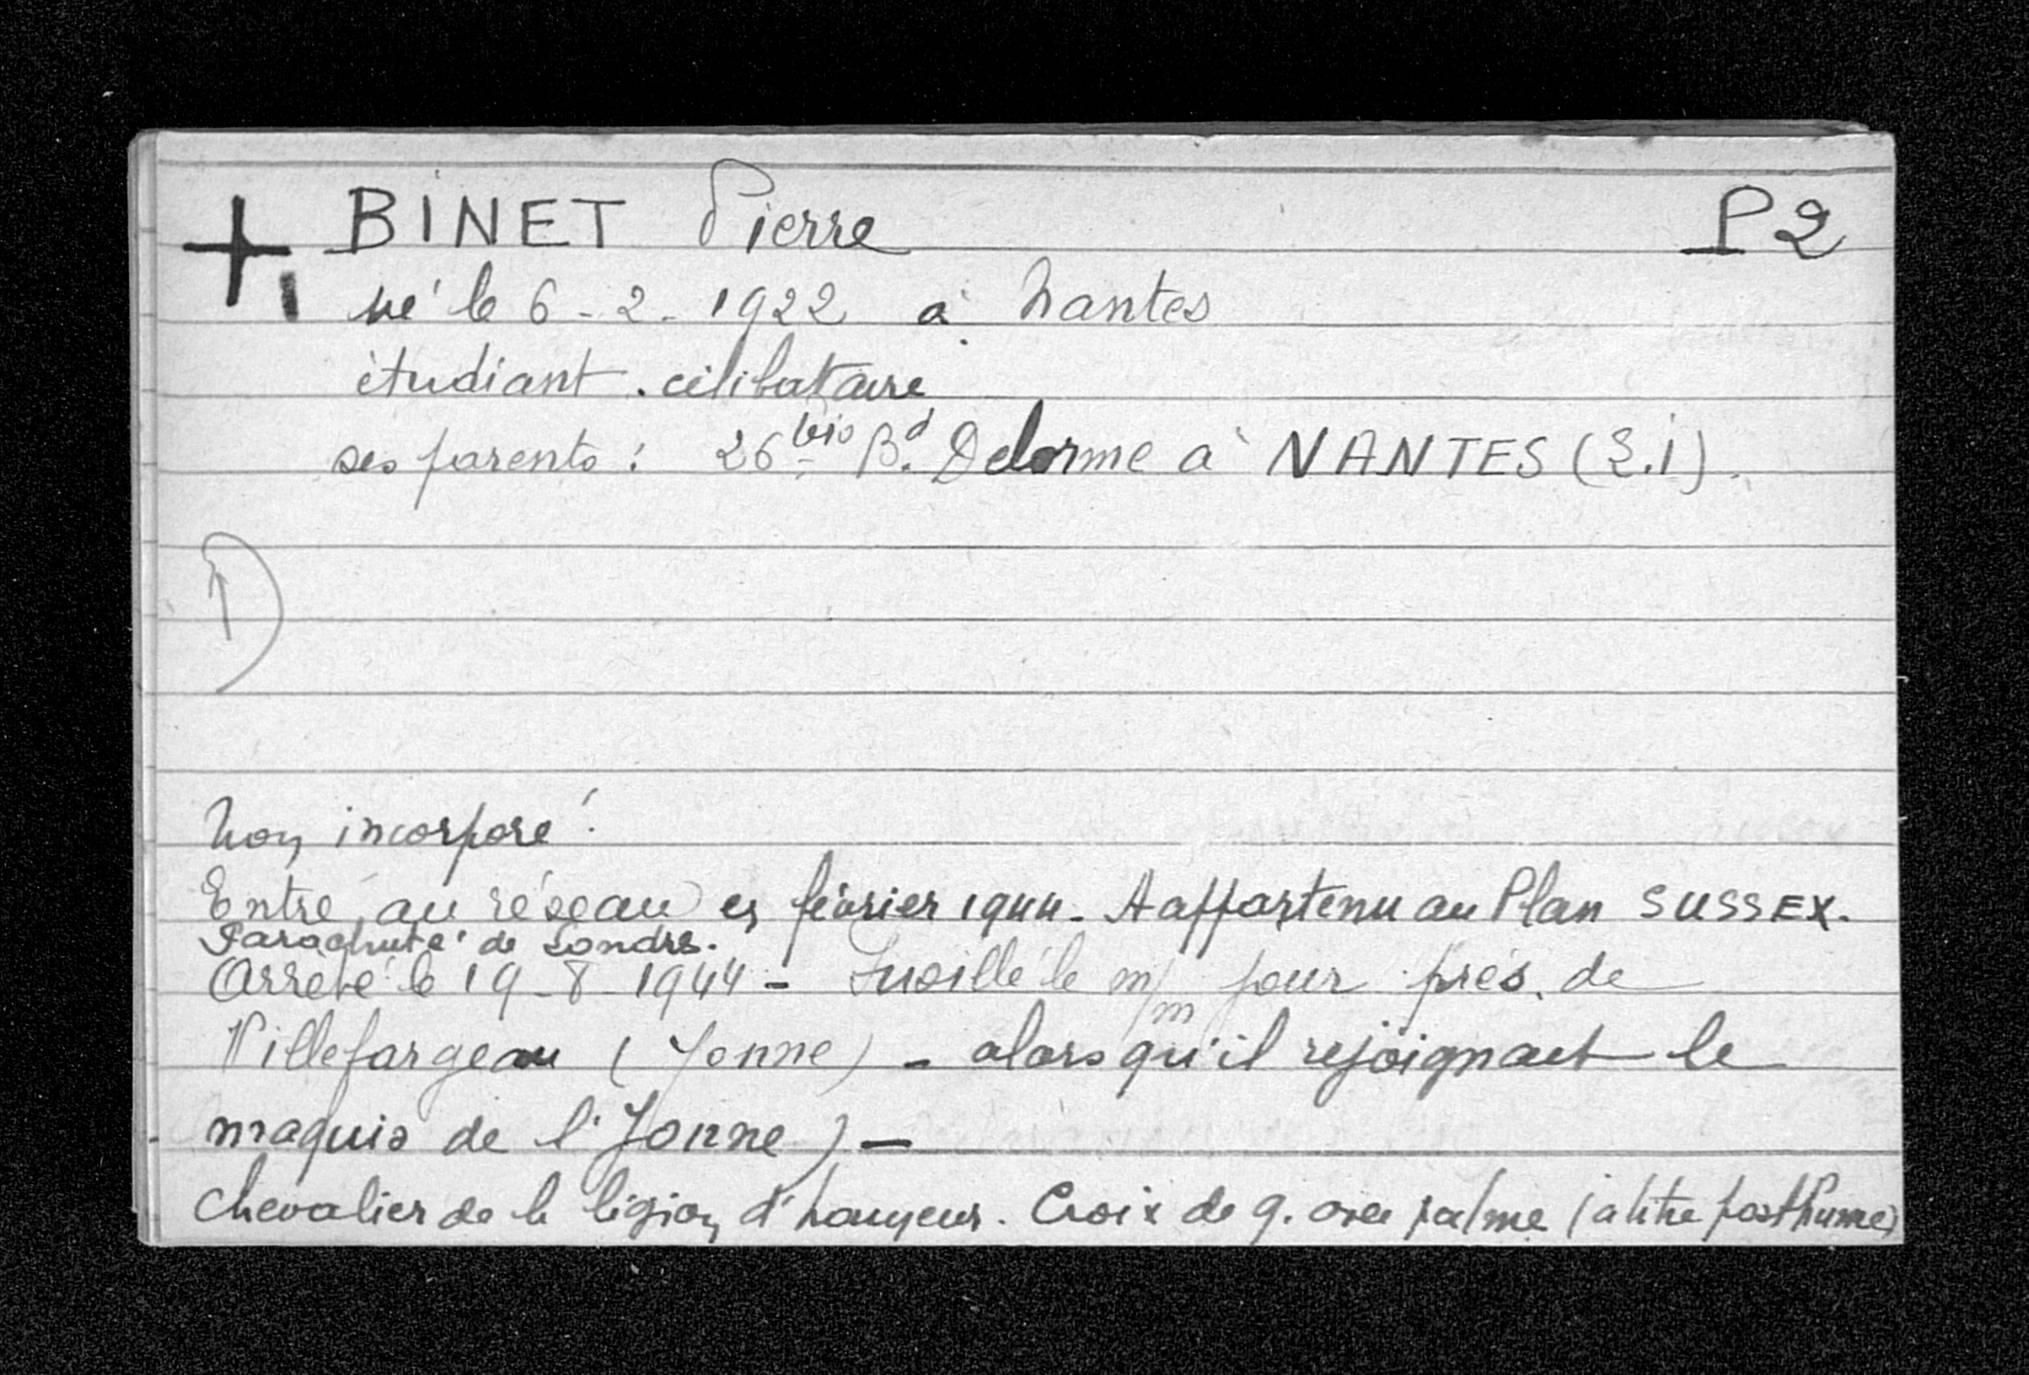 + BINET Pierre P2
né le 6-2-1922 à Nantes
étudiant. célibataire
ses parents : 26 bis Bd. Delorme à NANTES (L.I).
Non incorporé.
Entré au réseau en février 1944. A appartenu au Plan SUSSEX.
Parachuté de Londres.
Arrêté le 19-8-1944 - Fusillé le m/m jour près de
Villefargeau (Yonne) - alors qu'il rejoignait le
maquis de l'Yonne) -
Chevalier de la légion d'honneur. Croix de g. avec palme (à titre posthume)